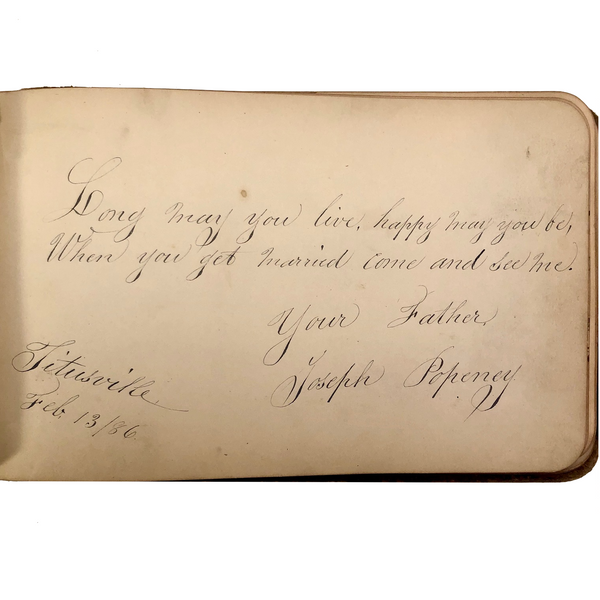 Long may you live, happy may you be,
When you get married come and see me.
Your Father,
Joseph Popeney
Titusville
Feb. 13/86.